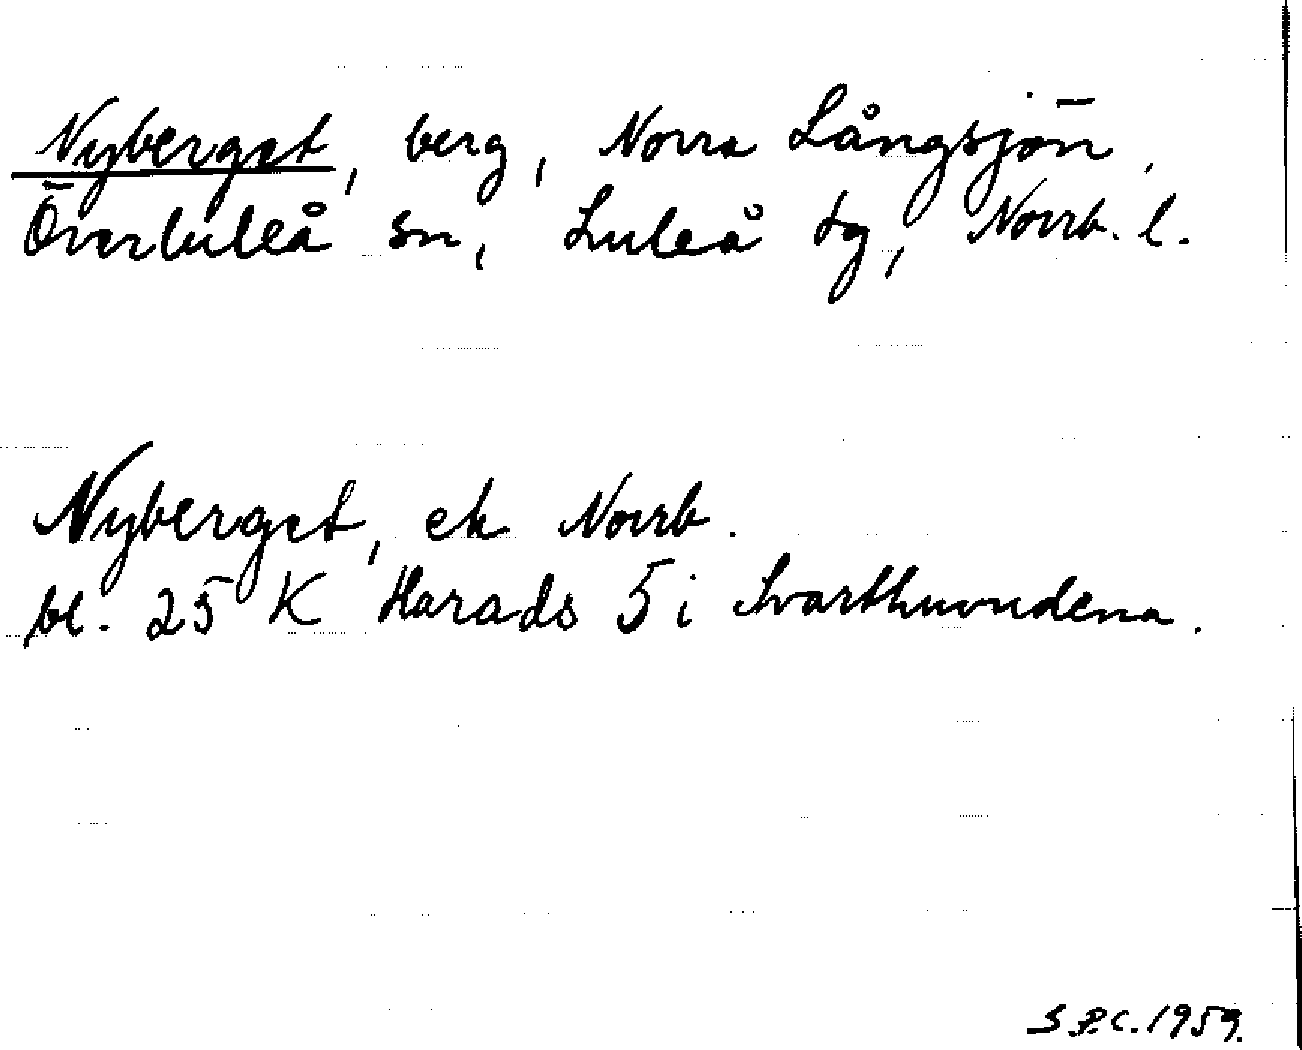 Nyberget, berg, Norra Långsjön,
Överluleå sn, Luleå tg, Norrb. l.
Nyberget, ek Norrb.
bl. 25 K Harads 5 i Svarthuvudena.
S.P.C. 1959.